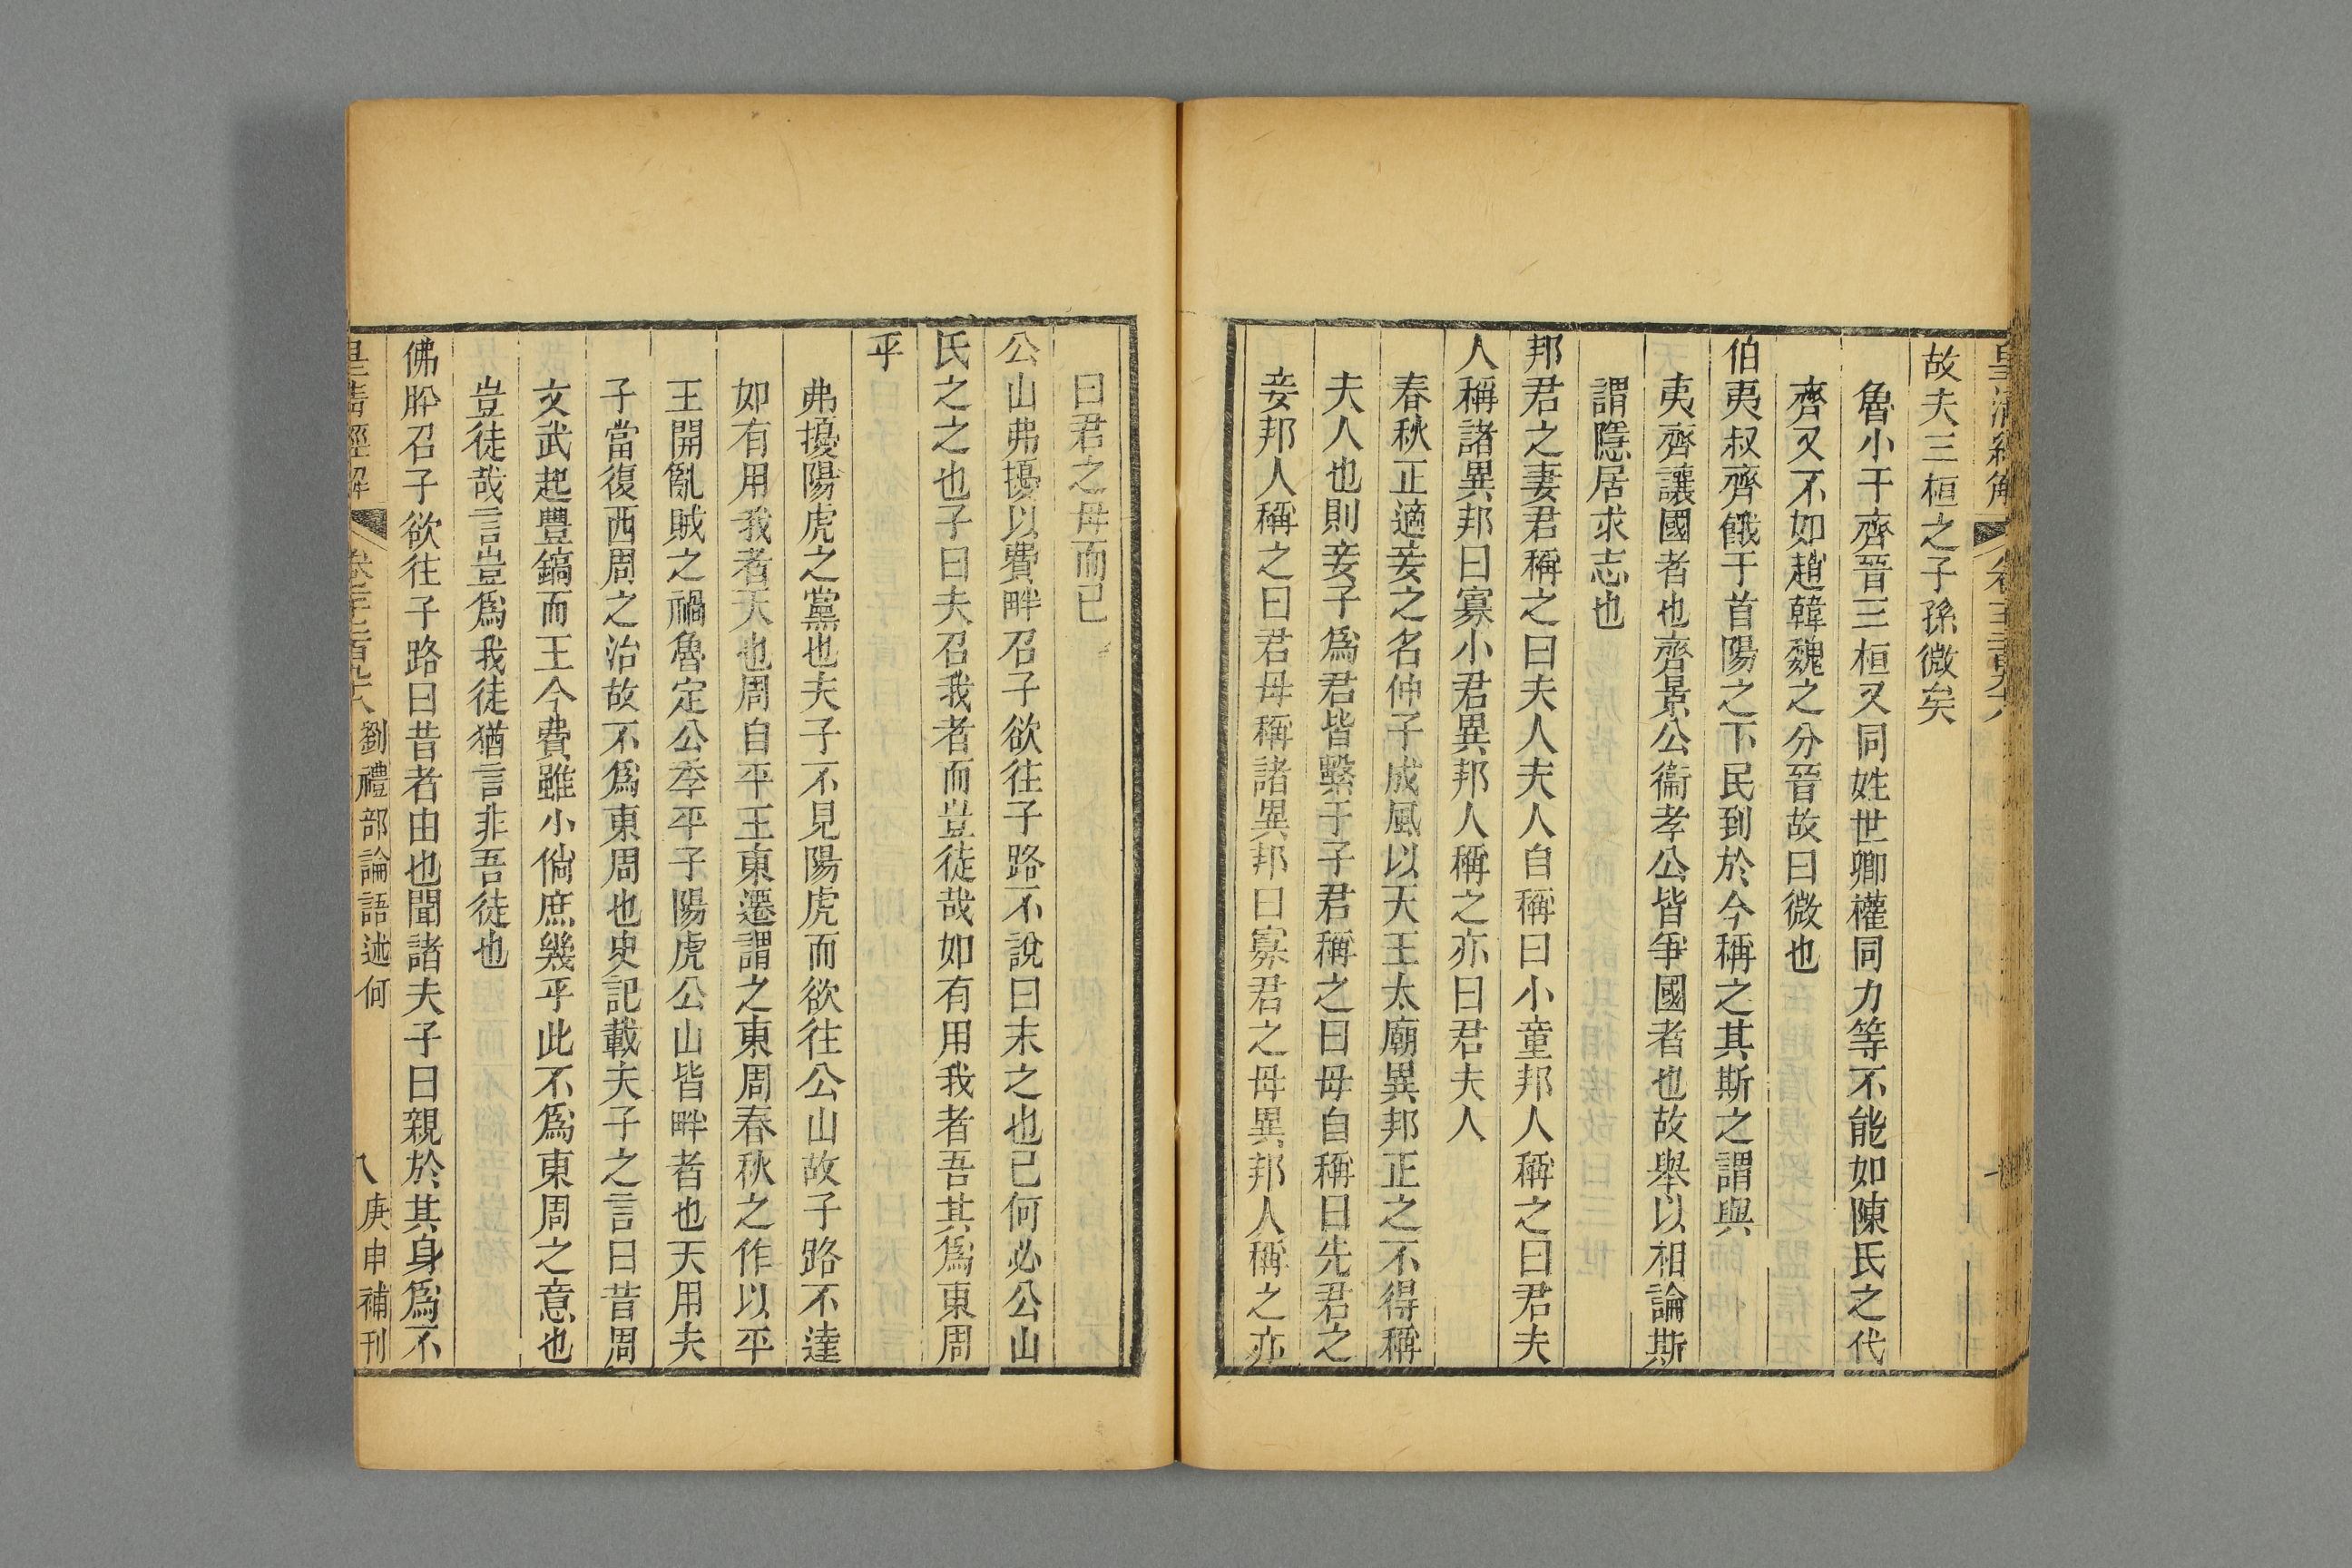 皇清經解
故夫三桓之子孫微矣
魯小于齊晉三桓又同姓世卿權同力等不能如陳氏之代
齊又不如趙韓魏之分晉故曰微也
伯夷叔齊餓于首陽之下民到於今稱之其斯之謂與
夷齊讓國者也齊景公衞孝公皆爭國者也故舉以相論斯
謂隱居求志也
邦君之妻君稱之曰夫人夫人自稱曰小童邦人稱之曰君夫
人稱諸異邦曰寡小君異邦人稱之亦曰君夫人
春秋正適妾之名仲子成風以天王太廟異邦正之不得稱
夫人也則妾子爲君皆繫于子君稱之曰母自稱曰先君之
妾邦人稱之曰君母稱諸異邦曰寡君之母異邦人稱之亦
曰君之母而已
公山弗擾以費畔召子欲往子路不說曰末之也已何必公山
氏之之也子曰夫召我者而豈徒哉如有用我者吾其爲東周
乎
弗擾陽虎之黨也夫子不見陽虎而欲往公山故子路不達
如有用我者天也周自平王東遷謂之東周春秋之作以平
王開亂賊之禍魯定公季平子陽虎公山皆畔者也天用夫
子當復西周之治故不爲東周也史記載夫子之言曰昔周
文武起豐鎬而王今費雖小倘庶幾乎此不爲東周之意也
豈徒哉言豈爲我徒猶言非吾徒也
佛肸召子欲往子路曰昔者由也聞諸夫子曰親於其身爲不
皇清經解 劉禮部論語述何 八 庚申補刊